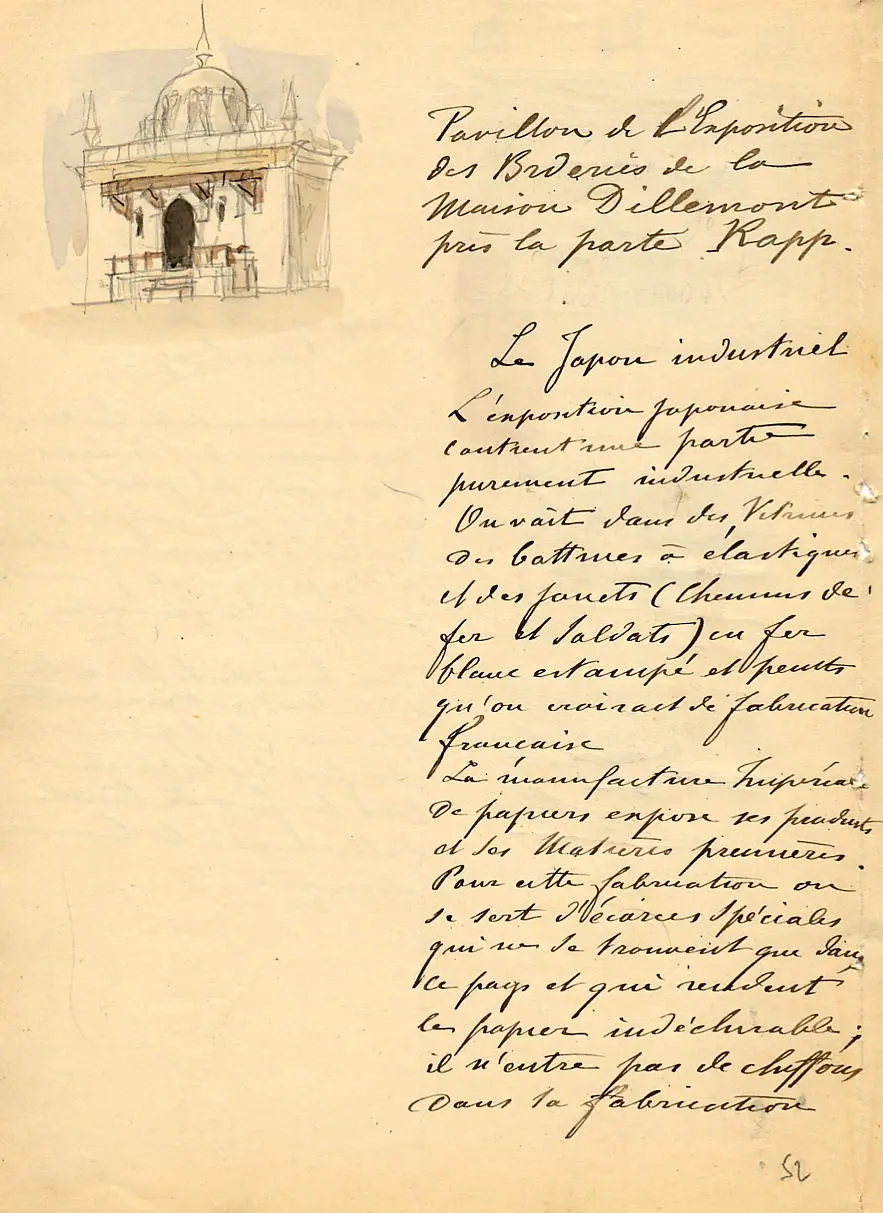 Pavillon de l'Exposition
des Broderies de la
Maison Dillemont
près la porte Rapp.
Le Japon industriel
L'exposition Japonaise
contient une partie
purement industrielle.
On voit dans des Vitrines
des bottines à élastiques
et des jouets (Chemins de
fer et Soldats) en fer
blanc estampé et peints
qu'on croirait de fabrication
française
La manufacture Impériale
de papiers expose ses produits
et ses Matières premières.
Pour cette fabrication on
se sert d'écorces spéciales
qui ne se trouvent que dans
ce pays et qui rendent
le papier indéchirable ;
il n'entre pas de chiffons
dans la fabrication
52